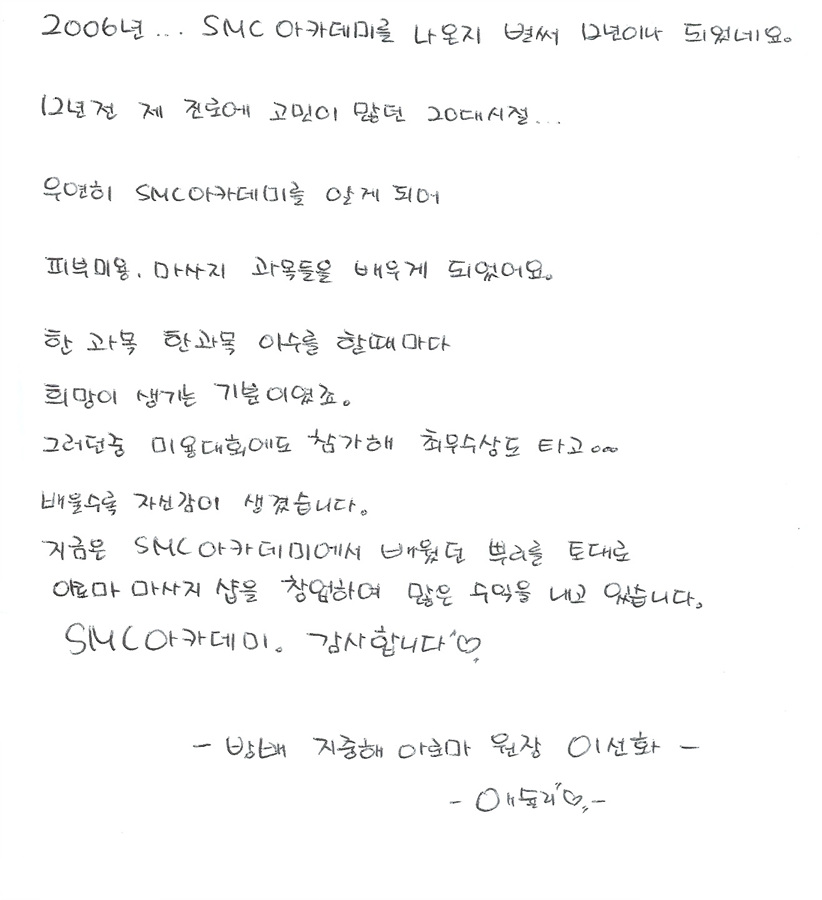 2006년... SMC 아카데미를 나온지 벌써 12년이나 되었네요.
12년전 제 진로에 고민이 많던 20대시절...
우연히 SMC아카데미를 알게 되어
피부미용, 마사지 과목들을 배우게 되었어요.
한 과목 한과목 이수를 할때마다
희망이 생기는 기분이였죠.
그러던중 미용대회에도 참가해 최우수상도 타고...
배울수록 자신감이 생겼습니다.
지금은 SMC아카데미에서 배웠던 뿌리를 토대로
아로마 마사지 샵을 창업하여 많은 수익을 내고 있습니다.
SMC아카데미. 감사합니다♡
- 방배 지중해 아로마 원장 이선화 -
- 애슐리♡ -